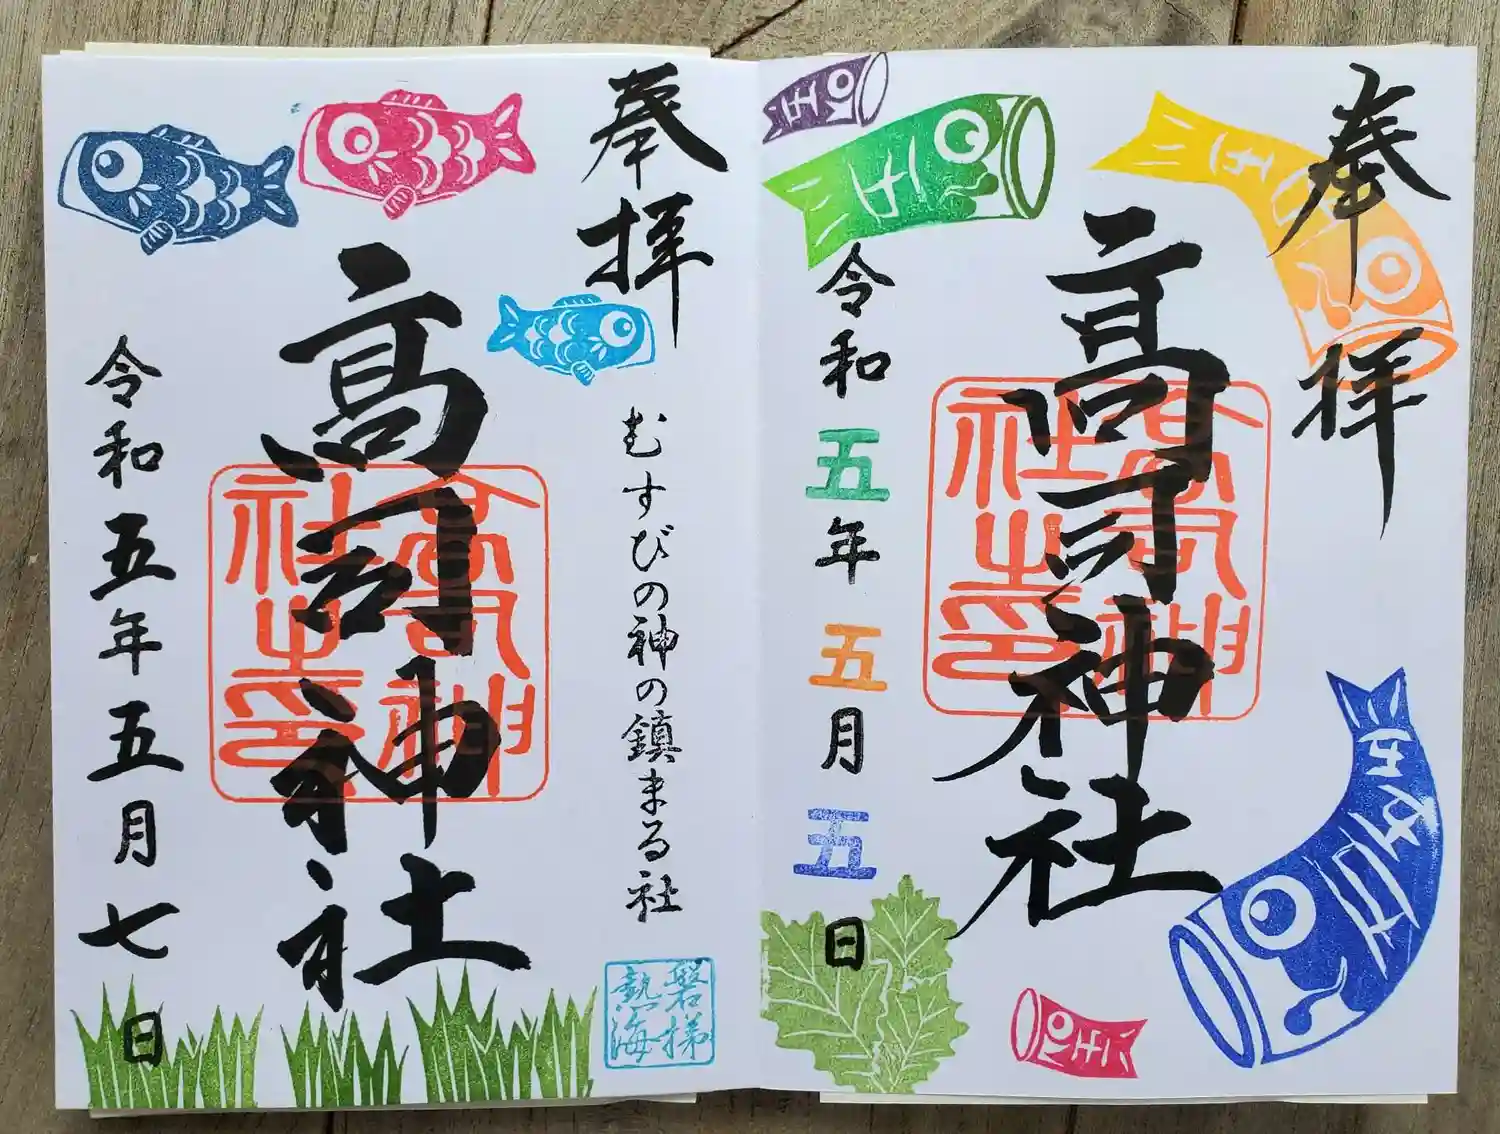 奉拝
高司神社
高司神社之印
令和五年五月五日
奉拝
むすびの神の鎮まる社
磐梯熱海
高司神社
高司神社之印
令和五年五月七日